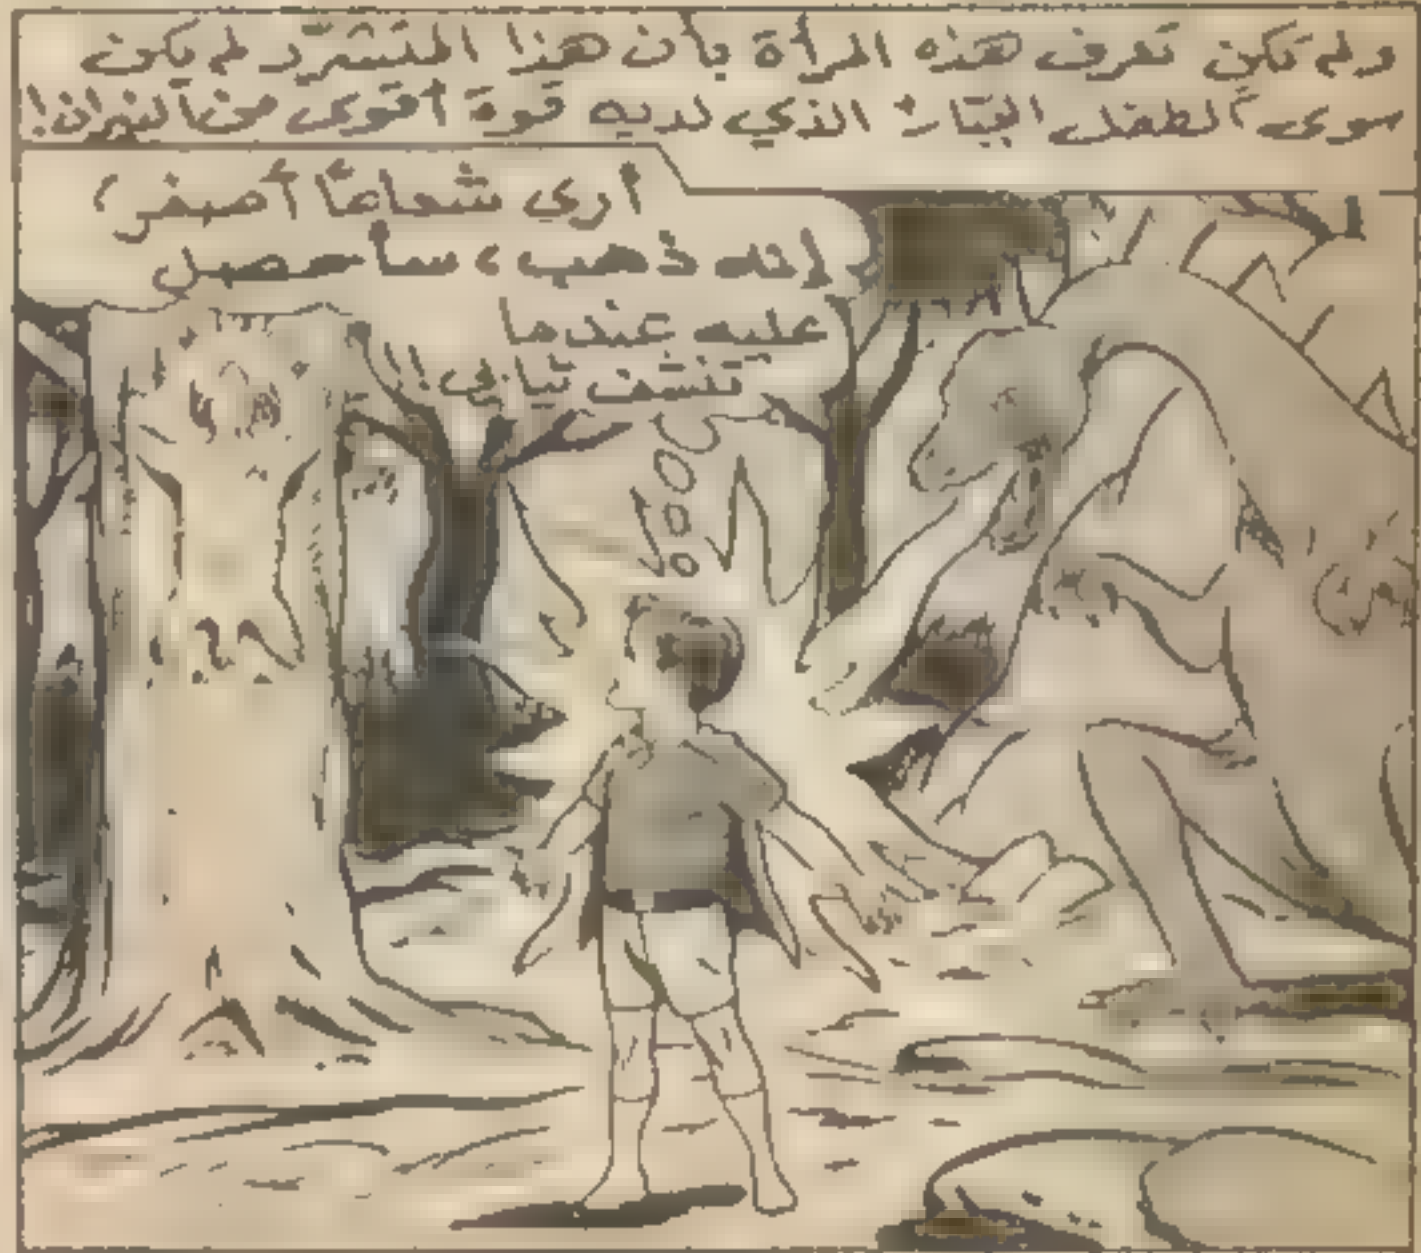 ولم تكن تعرف هذه المرأة بأن هذا المتشرد لم يكن
سوى الطفل الجبار الذي لديه قوة أقوى من النيران!
أرى شعاعاً أصفر،
إنه ذهب، سأحصل
عليه عندما
تنشف ثيابي!!